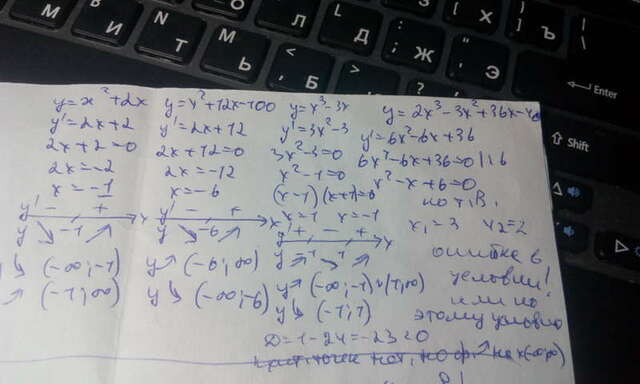 М И N Т Ь Л Б Д Ж Э Х Ъ
Enter
Shift
y=x²+2x
y'=2x+2
2x+2=0
2x=-2
x=-1
y' - +
x
y -1
y↘ (-∞;-1)
↗ (-1;∞)
y=x²+12x-100
y'=2x+12
2x+12=0
2x=-12
x=-6
y' - +
x
y -6
y↗ (-6;∞)
y↘ (-∞;-6)
y=x³-3x
y'=3x²-3
3x²-3=0
x²-1=0
(x-1)(x+1)=0
x=1 x=-1
+ - +
x
y -1 1
y↗ (-∞;-1)∪(1;∞)
y↘ (-1;1)
y=2x³-3x²+36x-40
y'=6x²-6x+36
6x²-6x+36=0 | :6
x²-x+6=0
по т.В.
x₁=3 x₂=2
ошибка в
условии!
или по
этому условию
D=1-24=-23<0
крит. точек нет, но ф. ↗ на x(-∞;∞)